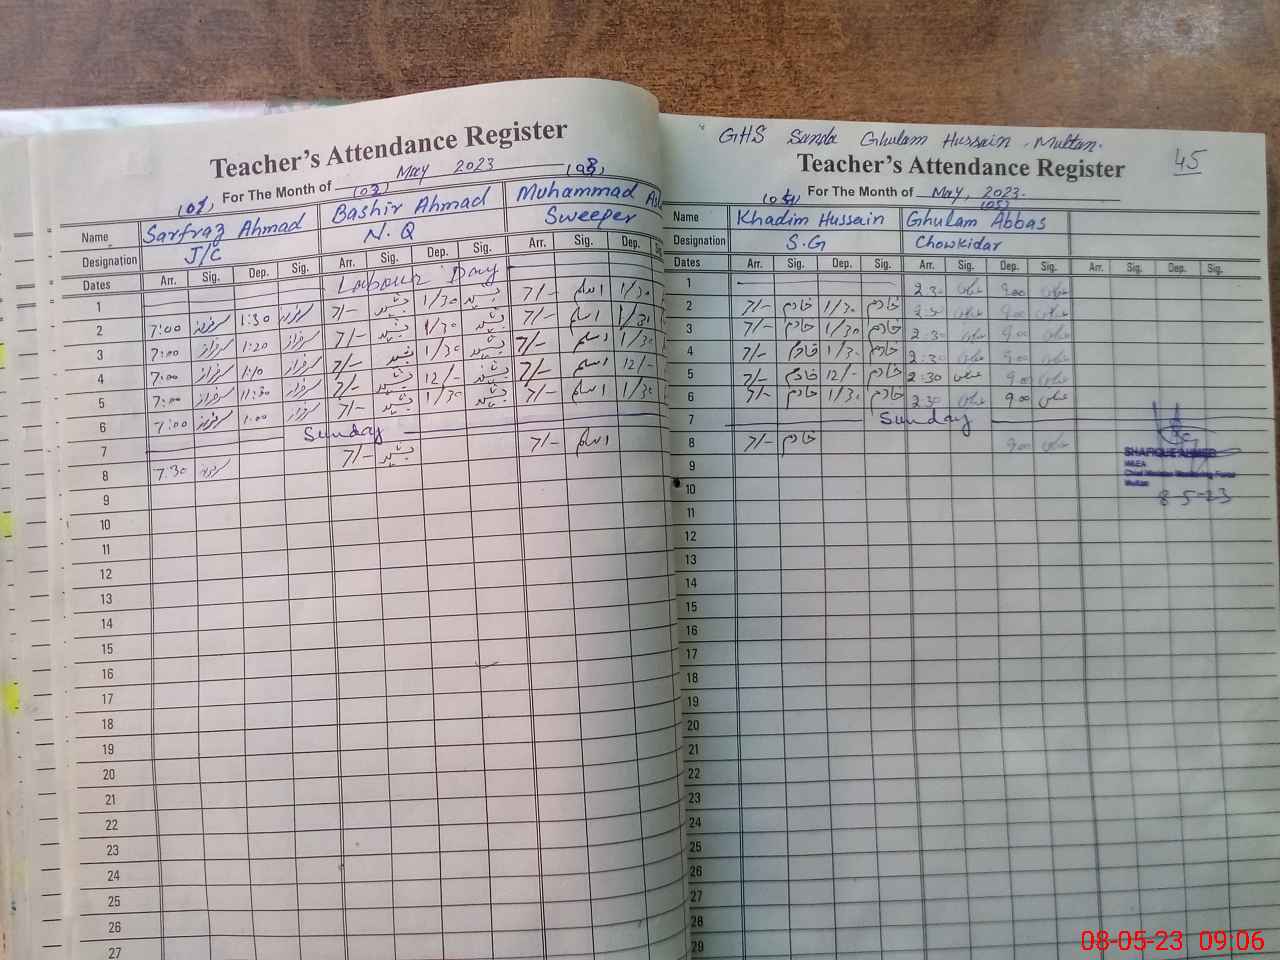 Teacher's Attendance Register
For The Month of (03) May 2023
(01) (08)
Name Sarfraz Ahmad Bashir Ahmad Muhammad
Designation J/C N.Q Sweeper
Dates Arr. Sig. Dep. Sig. Arr. Sig. Dep. Sig. Arr. Sig. Dep.
1 Labour Day
2 7:00 سرفراز 1:30 سرفراز 7/- بشیر 1/30 بشیر 7/- اسلم 1/30
3 7:00 سرفراز 1:20 سرفراز 7/- بشیر 1/30 بشیر 7/- اسلم 1/30
4 7:00 سرفراز 1:10 سرفراز 7/- بشیر 1/30 بشیر 7/- اسلم 1/30
5 7:00 سرفراز 11:30 سرفراز 7/- بشیر 12/- بشیر 7/- اسلم 12/-
6 7:00 سرفراز 1:00 سرفراز 7/- بشیر 1/30 بشیر 7/- اسلم 1/30
7 Sunday
8 7:30 سرفراز 7/- بشیر 7/- اسلم
9
10
11
12
13
14
15
16
17
18
19
20
21
22
23
24
25
26
27
GHS Sanda Ghulam Hussain, Multan.
45
Teacher's Attendance Register
For The Month of May, 2023.
Name Khadim Hussain Ghulam Abbas
Designation S.G Chowkidar
Dates Arr. Sig. Dep. Sig. Arr. Sig. Dep. Sig. Arr. Sig. Dep. Sig.
1 2:30 عباس 9:00 عباس
2 7/- خادم 1/30 خادم 2:30 عباس 9:00 عباس
3 7/- خادم 1/30 خادم 2:30 عباس 9:00 عباس
4 7/- خادم 1/30 خادم 2:30 عباس 9:00 عباس
5 7/- خادم 12/- خادم 2:30 عباس 9:00 عباس
6 7/- خادم 1/30 خادم 2:30 عباس 9:00 عباس
7 Sunday
8 7/- خادم 9:00 عباس
9
10
11
12
13
14
15
16
17
18
19
20
21
22
23
24
25
26
27
28
29
SHAFIQUE AHMED
MEA
Chief Minister Monitoring Force
Multan
8-5-23
08-05-23 09:06